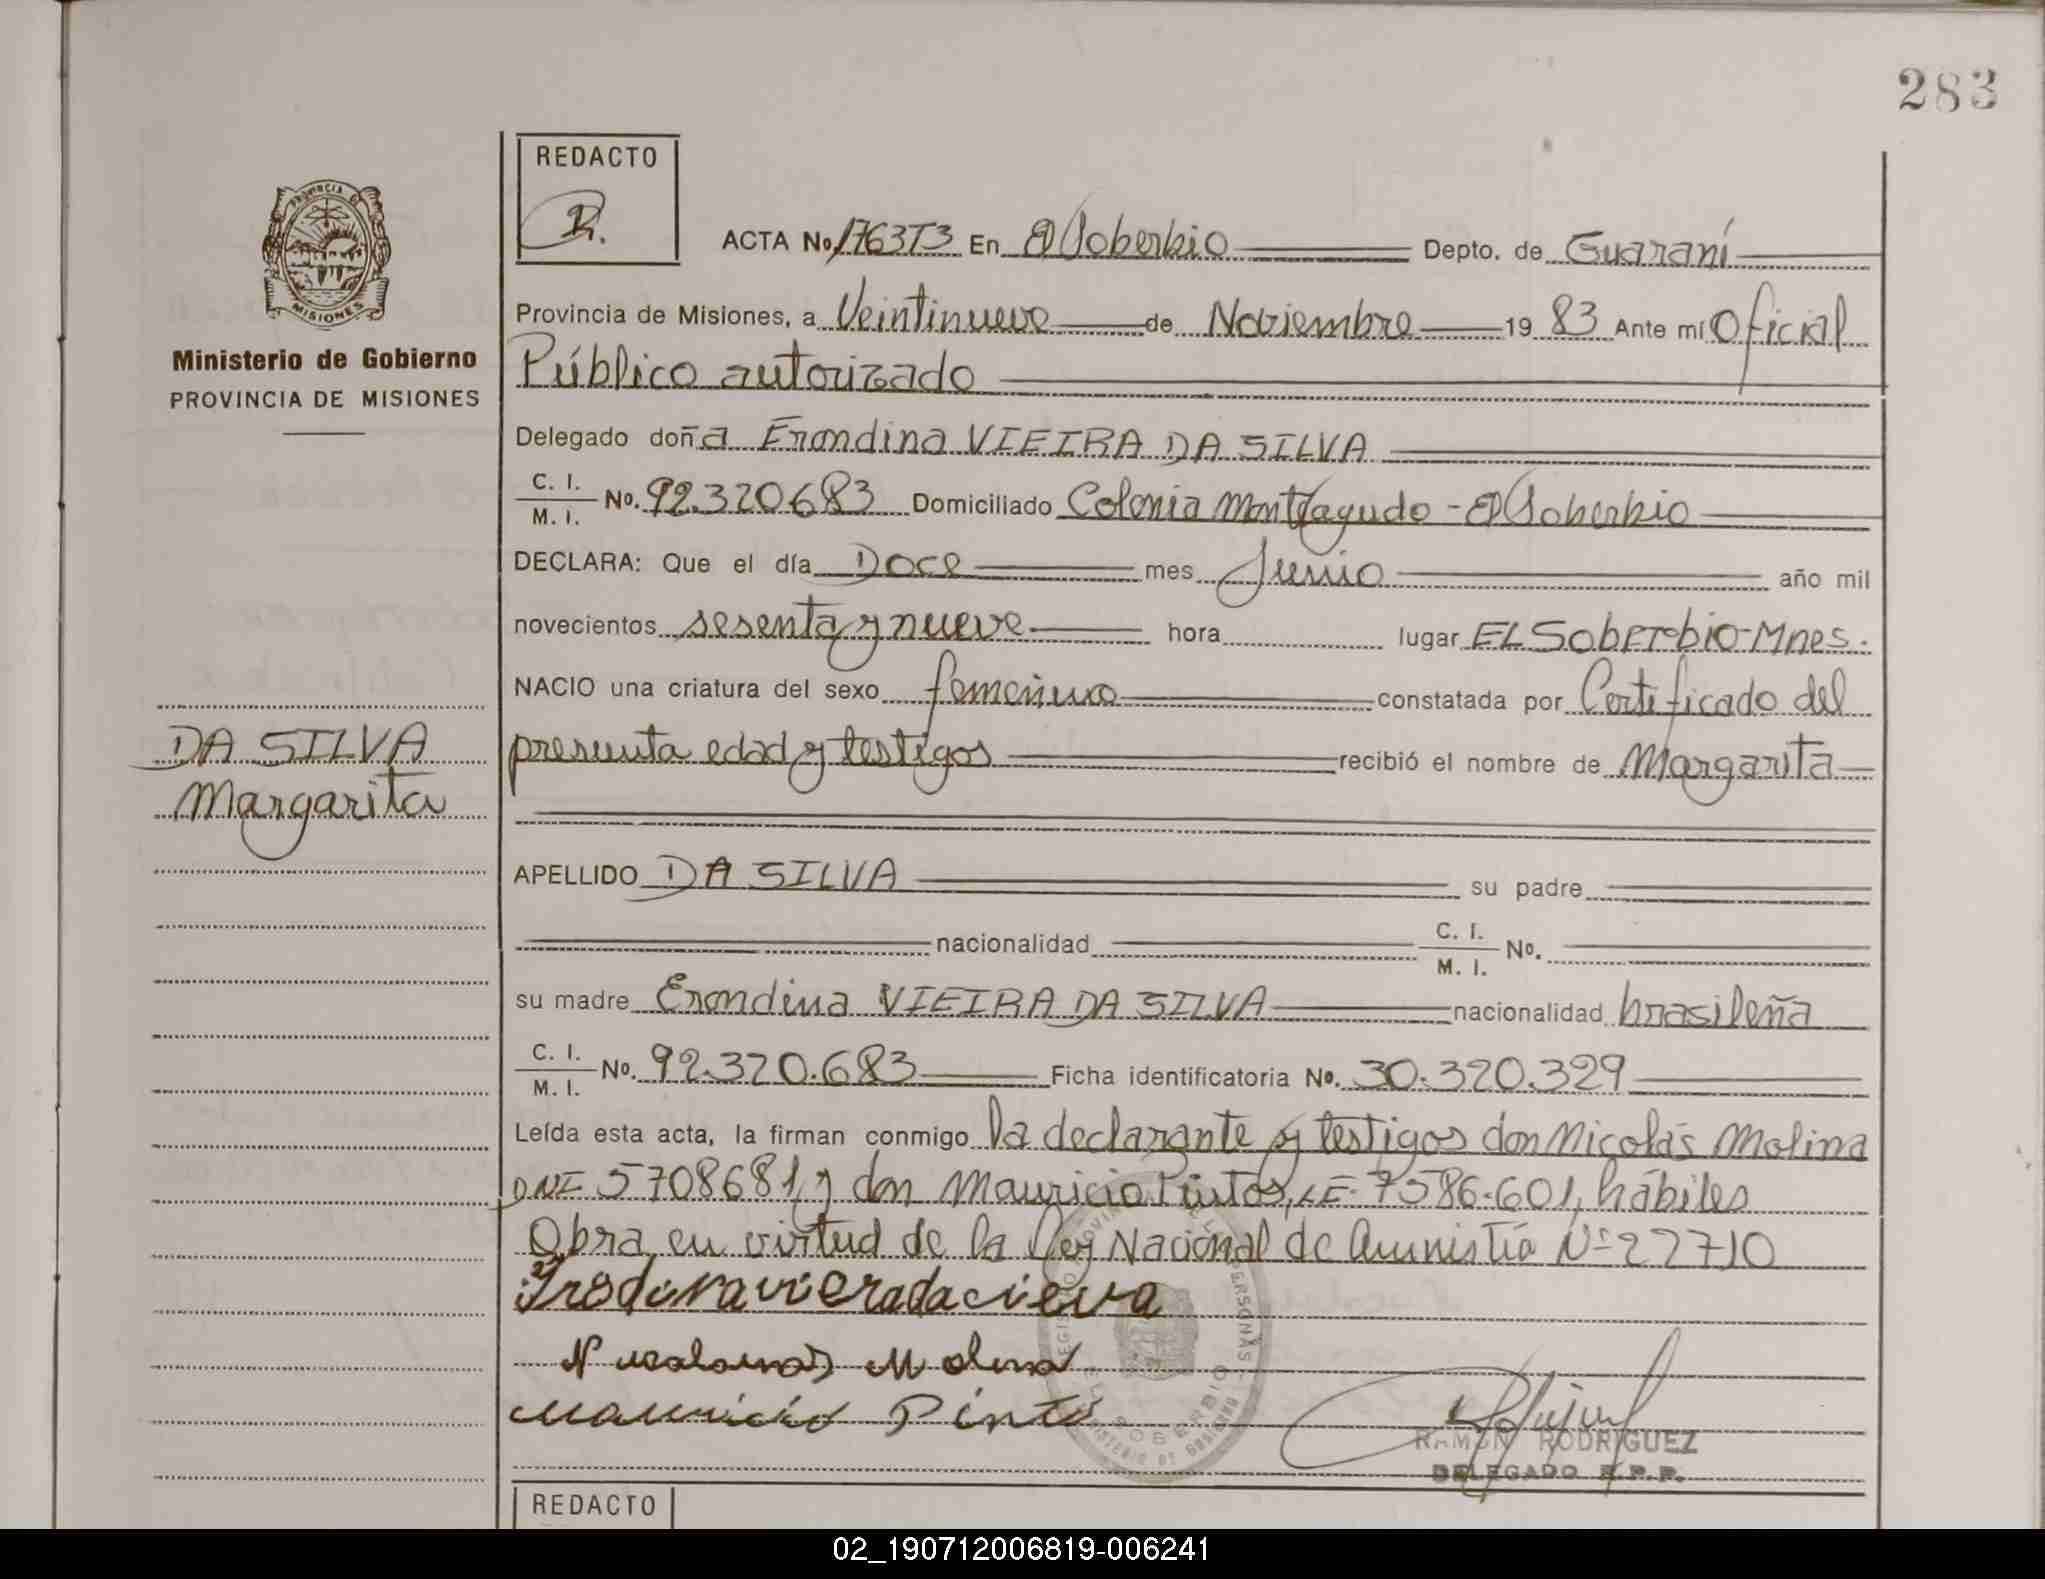 283
REDACTO
PROVINCIA DE
MISIONES
Ministerio de Gobierno
PROVINCIA DE MISIONES
ACTA No. 1763T3 En El Soberbio Depto. de Guaraní
Provincia de Misiones, a Veintinueve de Noviembre 19 83 Ante mí Oficial
Público autorizado
Delegado doña Erondina VIEIRA DA SILVA
C. I.
M. I. No. 92.320683 Domiciliado Colonia Monteagudo - El Soberbio
DECLARA: Que el día Doce mes Junio año mil
novecientos sesenta y nueve hora lugar EL Soberbio-Mnes.
NACIO una criatura del sexo femenino constatada por Certificado del
presunta edad y testigos recibió el nombre de Margarita
DA SILVA
Margarita
APELLIDO DA SILVA su padre
nacionalidad C. I.
M. I. No.
su madre Erondina VIEIRA DA SILVA nacionalidad brasileña
C. I.
M. I. No. 92.320.683 Ficha identificatoria No. 30.320.329
Leída esta acta, la firman conmigo la declarante y testigos don Nicolás Molina
DNI 5708681, y don Mauricio Pintos, LE. 7586.601, hábiles
Obra en virtud de la Ley Nacional de Amnistía Nº 22710
Irodina viera da cieva
Molina
Mauricio Pinto
EL SOBERBIO
RAMON RODRIGUEZ
DELEGADO R.P.P.
REDACTO
02_190712006819-006241